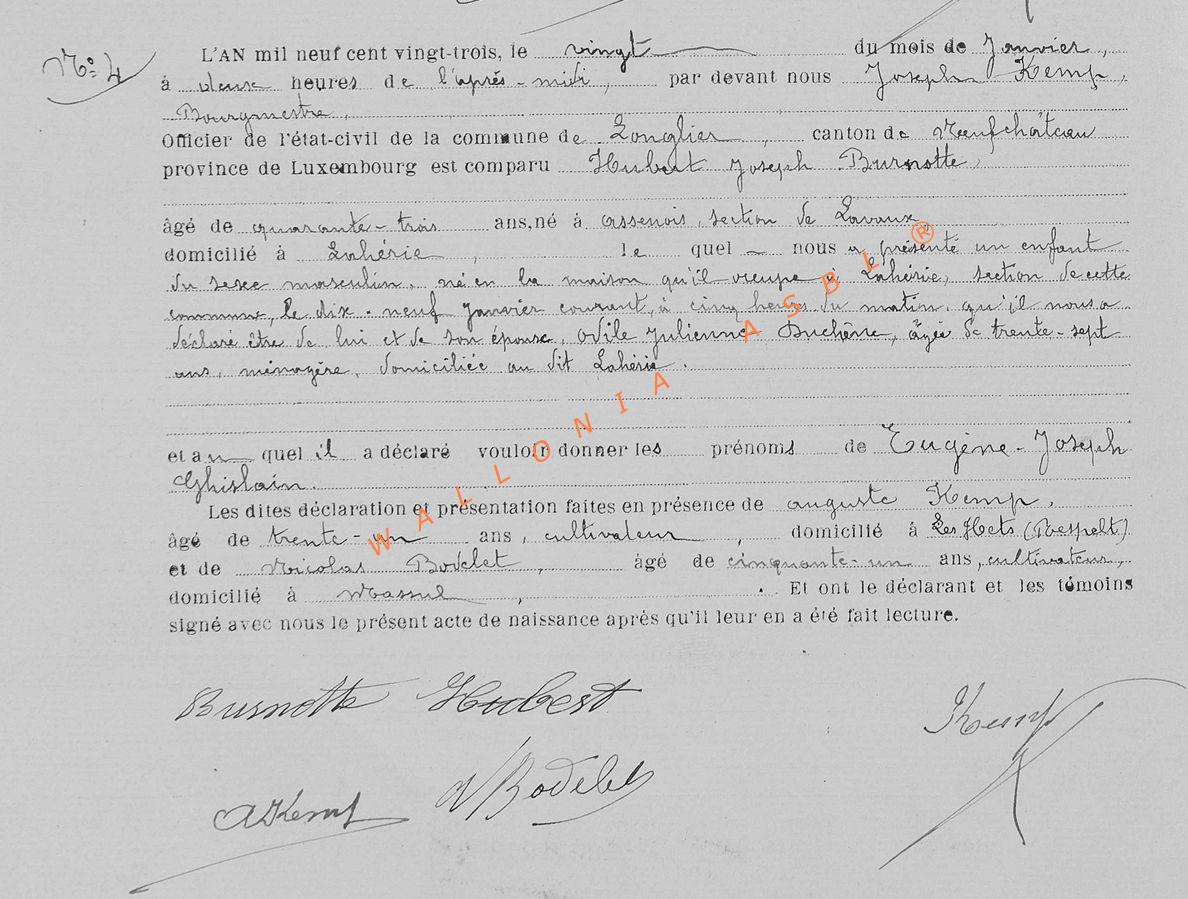 N° 4
L'AN mil neuf cent vingt-trois, le vingt du mois de Janvier,
à deux heures de l'après-midi, par devant nous Joseph Kemp,
Bourgmestre,
Officier de l'état-civil de la commune de Longlier, canton de Neufchâteau
province de Luxembourg est comparu Hubert Joseph Burnotte,
âgé de quarante-trois ans, né à Assenois, section de Lavaux,
domicilié à Lahérie, le quel nous a présenté un enfant
du sexe masculin, né en la maison qu'il occupe à Lahérie, section de cette
commune, le dix-neuf Janvier courant, à cinq heures du matin, qu'il nous a
déclaré être de lui et de son épouse, Odile Julienne Duchêne, âgée de trente-sept
ans, ménagère, domiciliée au dit Lahérie.
et au quel il a déclaré vouloir donner les prénoms de Eugène-Joseph
Ghislain.
Les dites déclaration et présentation faites en présence de Auguste Kemp,
âgé de trente-un ans, cultivateur, domicilié à Les Hets (Respelt)
et de Nicolas Bodelet, âgé de cinquante-un ans, cultivateur,
domicilié à Massul, . Et ont le déclarant et les témoins
signé avec nous le présent acte de naissance après qu'il leur en a été fait lecture.
WALLONIA ASBL ®
Burnotte Hubert
Kemp
A Kemp
N Bodelet